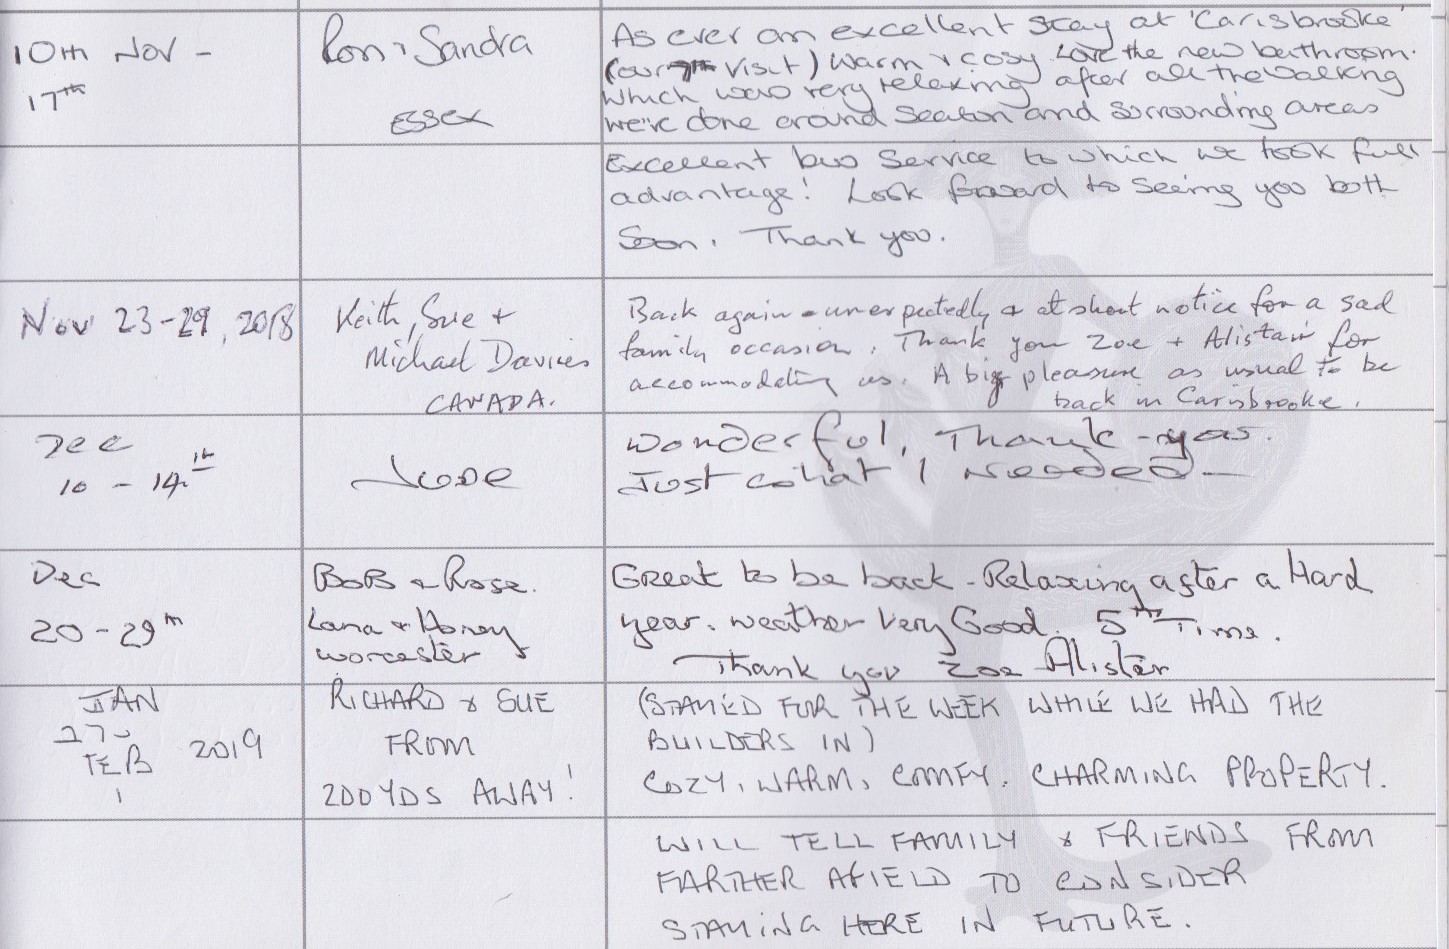 10th Nov - 17th
Ron & Sandra
ESSEX
As ever an excellent stay at 'Carisbrooke'
(our 7th visit) Warm & cosy. Love the new bathroom.
Which was very relaxing after all the walking
we've done around Seaton and surrounding areas
Excellent bus service to which we took full
advantage! Look forward to seeing you both
Soon. Thank you.
Nov 23-29, 2018
Keith, Sue +
Michael Davies
CANADA.
Back again - unexpectedly & at short notice for a sad
family occasion. Thank you Zoe + Alistair for
accommodating us. A big pleasure as usual to be
back in Carisbrooke.
Dec
10 - 14th
Jude
Wonderful. Thank-you.
Just what I needed -
Dec
20-29th
BoB & Rose.
Lana & Honey
Worcester
Great to be back - Relaxing after a Hard
year. weather Very Good. 5th Time.
Thank you Zoe Alister
JAN
27-
FEB 2019
1
RICHARD & SUE
FROM
200YDS AWAY!
(STAYED FOR THE WEEK WHILE WE HAD THE
BUILDERS IN)
COZY, WARM, COMFY. CHARMING PROPERTY.
WILL TELL FAMILY & FRIENDS FROM
FARTHER AFIELD TO CONSIDER
STAYING HERE IN FUTURE.